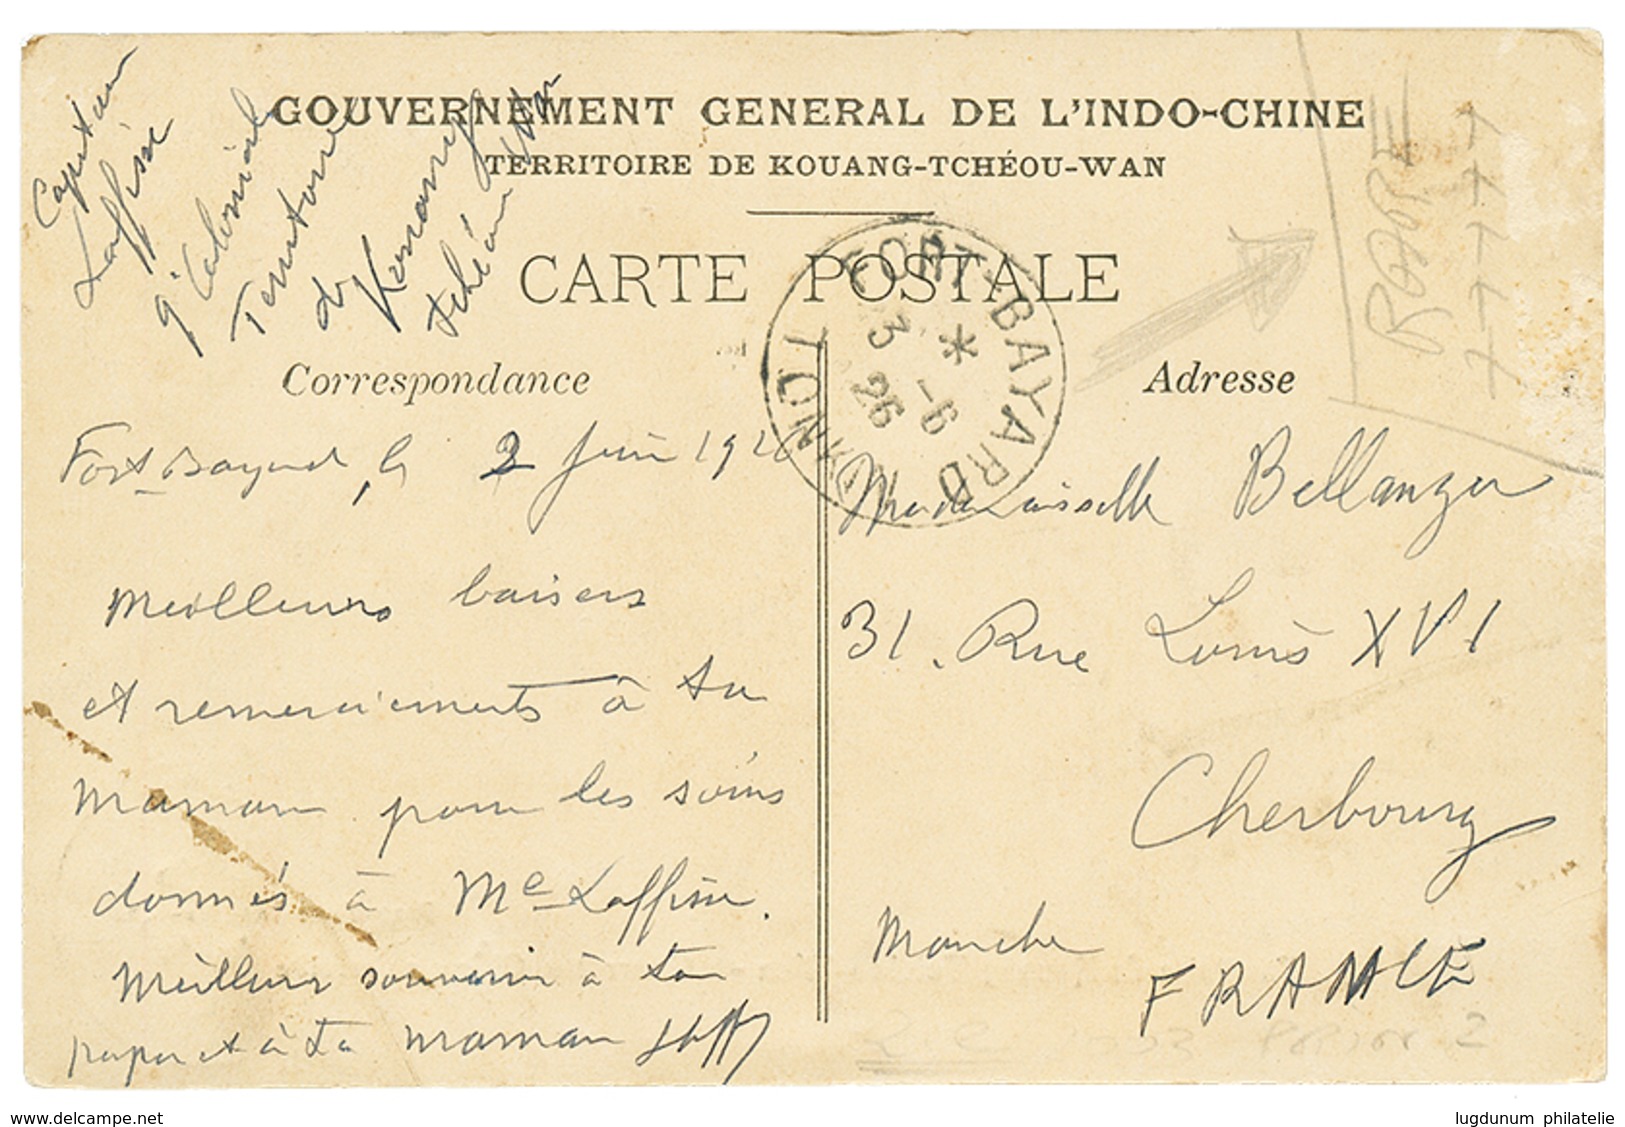 GOUVERNEMENT GENERAL DE L'INDO-CHINE
TERRITOIRE DE KOUANG-TCHÉOU-WAN
CARTE POSTALE
Capitaine
Laffisse
9e Colonial
Territoire
de Kouang
tchéou Wan
FORT-BAYARD
*
3 -6
26
TONKIN
Correspondance
Adresse
RARE
Fort-Bayard, le 2 Juin 1926
Meilleurs baisers
et remerciements à ta
maman pour les soins
donnés à Me Laffisse.
Meilleur souvenir à ton
papa et à ta maman
Mademoiselle Bellanger
31, Rue Louis XVI
Cherbourg
Manche
FRANCE
www.delcampe.net
lugdunum philatelie